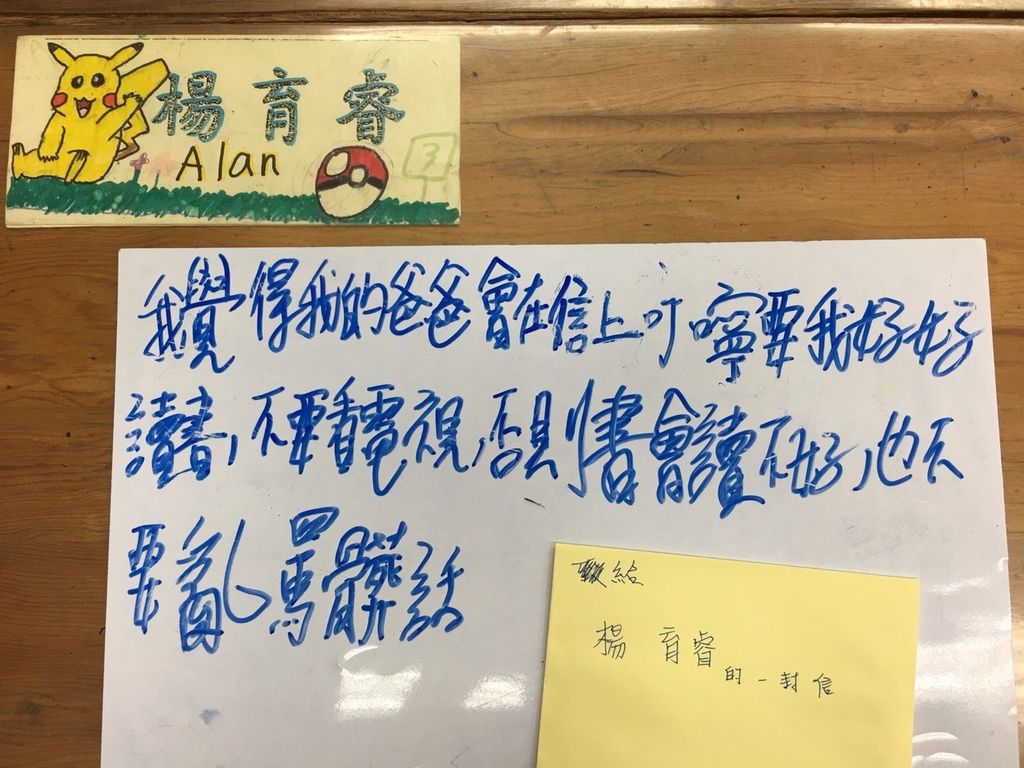 楊育睿
Alan
我覺得我的爸爸會在信上叮嚀要我好好
讀書,不要看電視,否則書會讀不好,也不
要亂罵髒話
給
楊育睿
的一封信